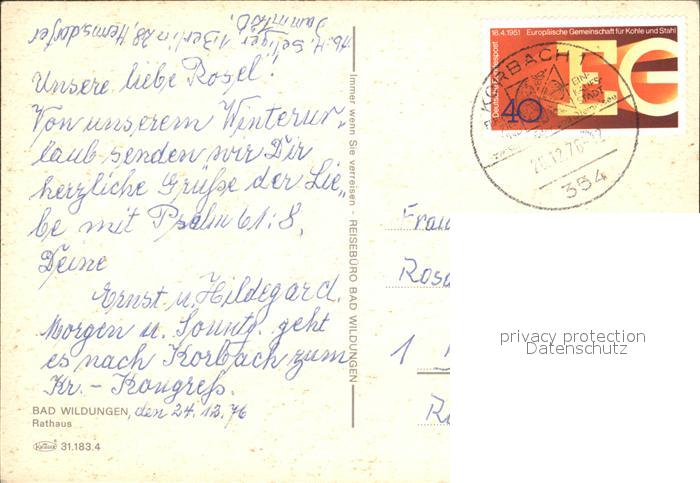 Unsere liebe Rosel!
Von unserem Winterur-
laub senden wir Dir
herzliche Grüße der Lie-
be mit Psalm 61:8,
Deine
Ernst u. Hildegard.
Morgen u. Sonntg. geht
es nach Korbach zum
Kr.-Kongreß.
BAD WILDUNGEN, den 24.12.76
Rathaus
31.183.4
1 Berlin 28, Hermsdorf
Immer wenn Sie verreisen - REISEBÜRO BAD WILDUNGEN
18.4.1951 Europäische Gemeinschaft für Kohle und Stahl
Deutsche Bundespost
40
KORBACH 1
EIN-
KAUFS-
STADT
354
Frau
Rosa
1
privacy protection
Datenschutz